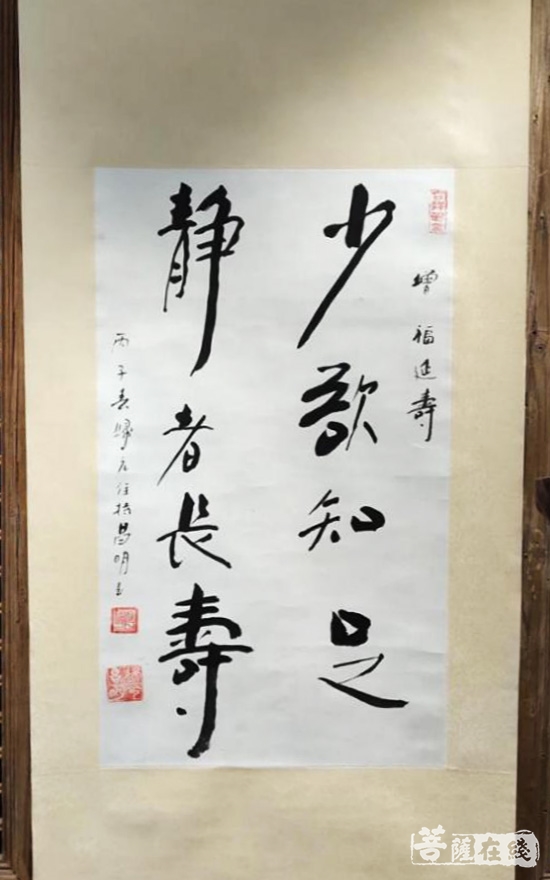 增福延壽
少欲知足
静者長壽
丙子春歸元住持昌明書
菩薩在綫